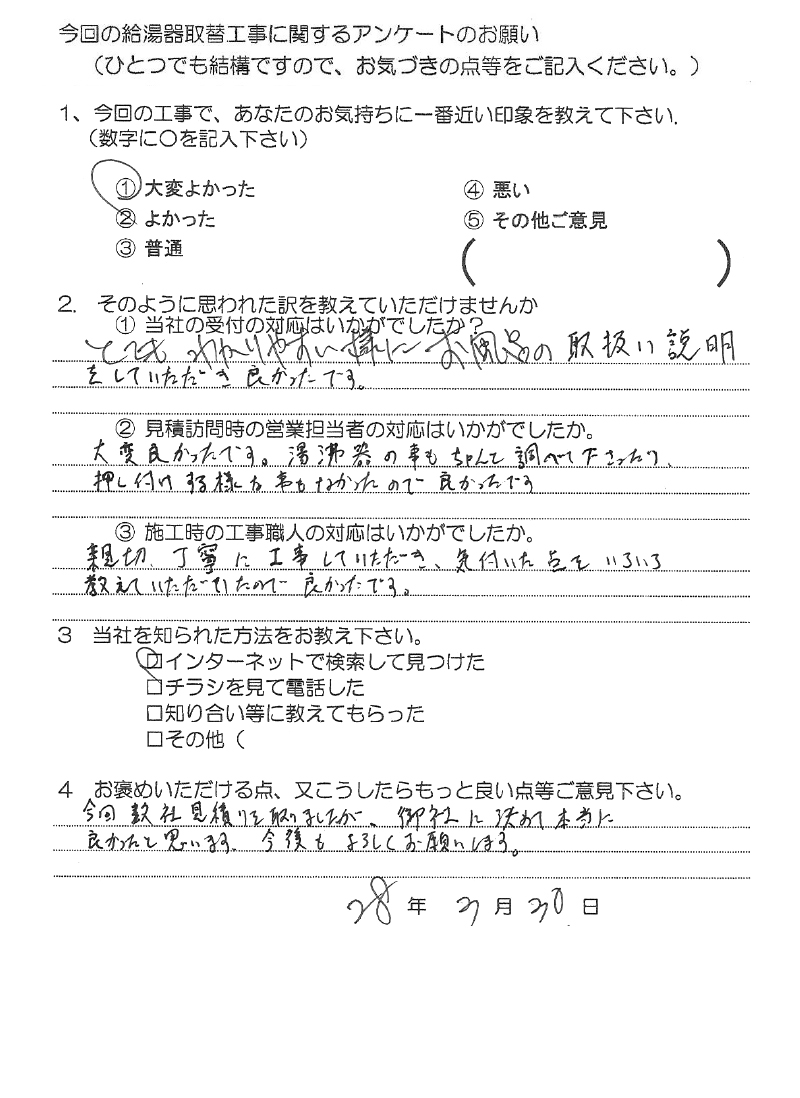 今回の給湯器取替工事に関するアンケートのお願い
(ひとつでも結構ですので、お気づきの点等をご記入ください。)
1、今回の工事で、あなたのお気持ちに一番近い印象を教えて下さい.
(数字に○を記入下さい)
① 大変よかった
② よかった
③ 普通
④ 悪い
⑤ その他ご意見
( )
2. そのように思われた訳を教えていただけませんか
① 当社の受付の対応はいかがでしたか？
とても わかりやすい様に お風呂の 取扱い 説明
をしていただき 良かったです。
② 見積訪問時の営業担当者の対応はいかがでしたか。
大変良かったです。湯沸器の事も ちゃんと 調べて下さったり、
押し付ける様な事もなかったので 良かったです
③ 施工時の工事職人の対応はいかがでしたか。
親切、丁寧に工事していただき、気付いた点を いろいろ
教えていただいたので 良かったです。
3 当社を知られた方法をお教え下さい。
□インターネットで検索して見つけた
□チラシを見て電話した
□知り合い等に教えてもらった
□その他 (
4 お褒めいただける点、又こうしたらもっと良い点等ご意見下さい。
今回 数社見積りを取りましたが、御社に決めて本当に
良かったと思います. 今後も よろしくお願いします。
28 年 3 月 30 日